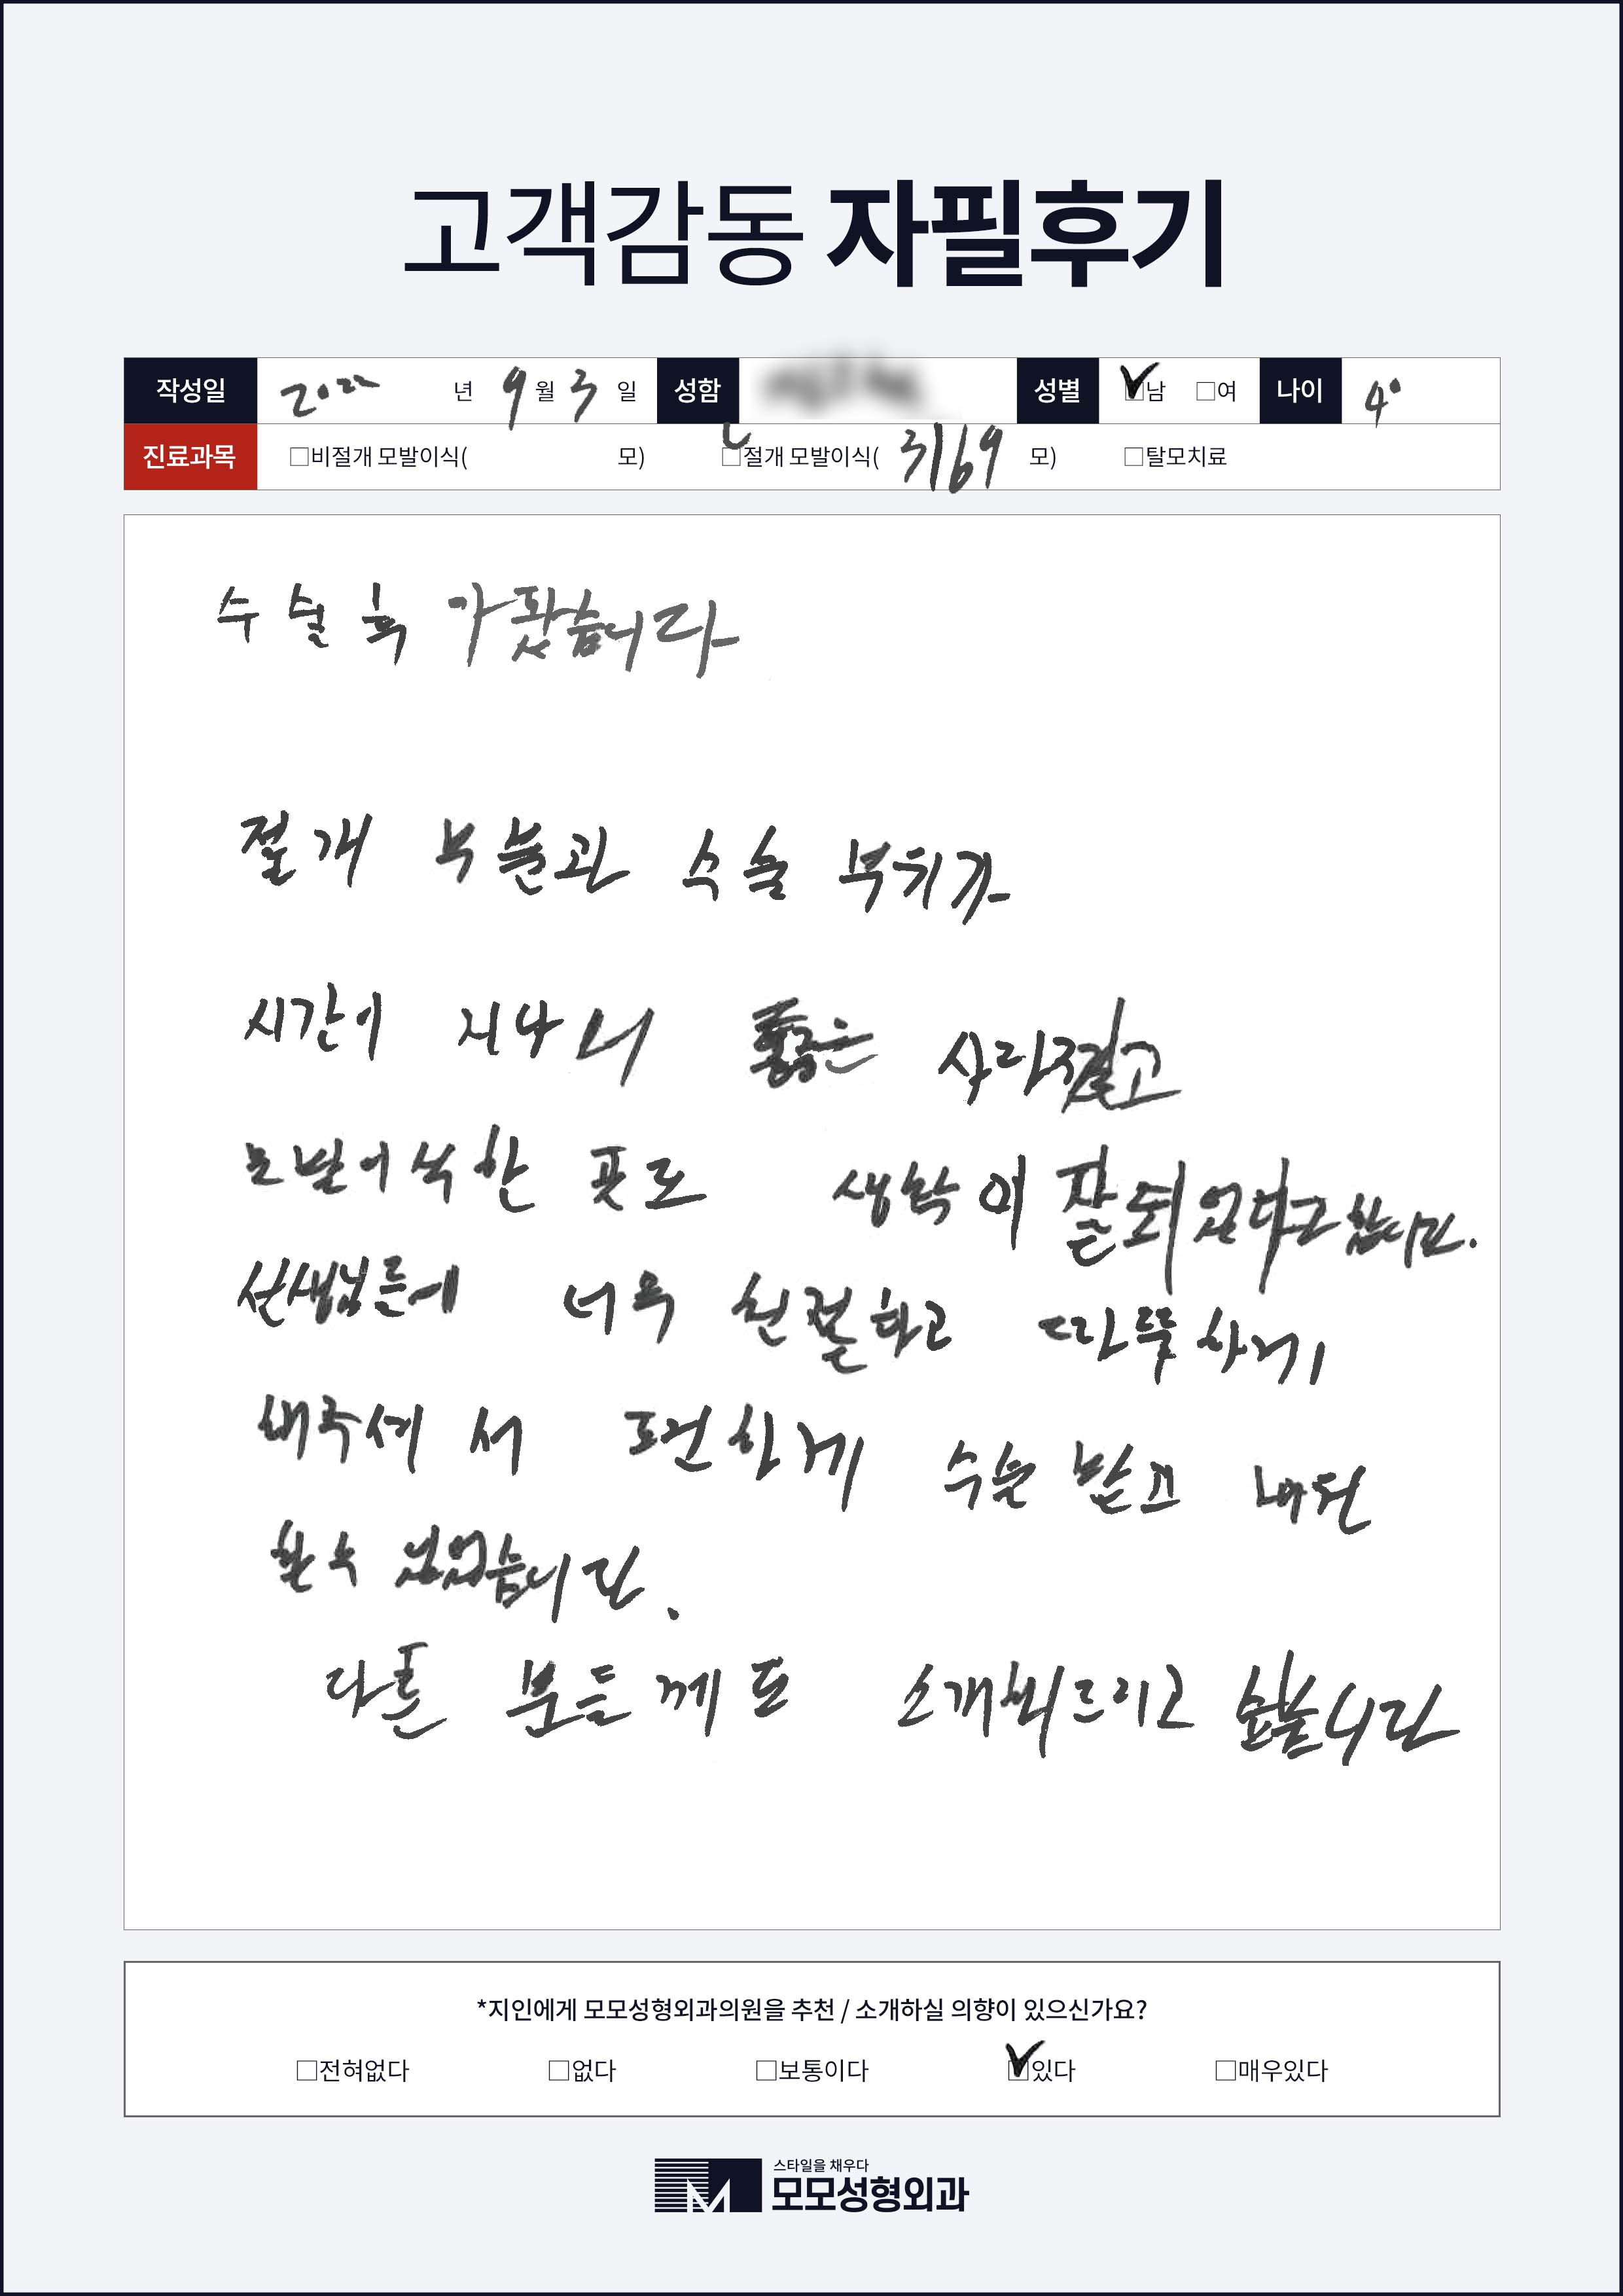 고객감동 자필후기
작성일 2022 년 9 월 3 일 성함 성별 ☑남 □여 나이 40
진료과목 □비절개 모발이식( 모) ☑절개 모발이식( 3169 모) □탈모치료
수술 훅 가팠습니다
절개 부분과 수술 부위가
시간이 지나니 사라졌고
모발이식한 곳도 생착이 잘되었다고합니다.
선생님들에 너무 친절하고 따뚯하게
해주셔서 편하게 수술 받고
할수 있었습니다.
다른 분들께도 소개해드리고 싶습니다
*지인에게 모모성형외과의원을 추천 / 소개하실 의향이 있으신가요?
□전혀없다 □없다 □보통이다 ☑있다 □매우있다
스타일을 채우다
모모성형외과